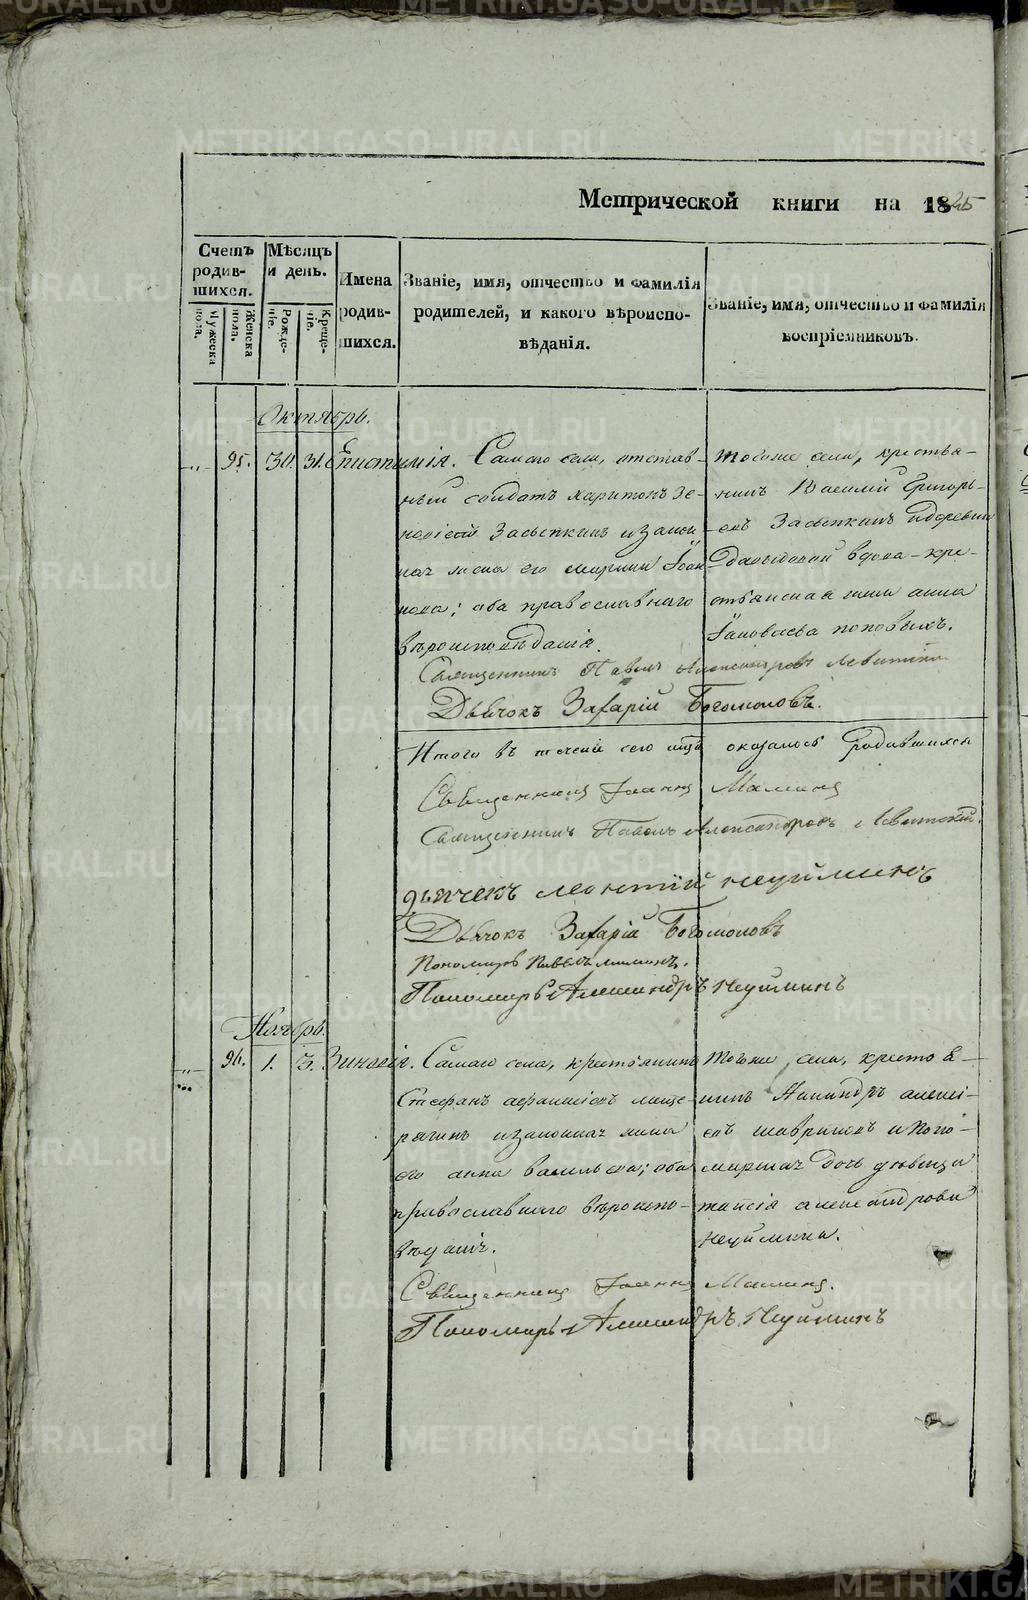 METRIKI.GASO-URAL.RU
Метрической книги на 1845
Счетъ родив-шихся.
Мѣсяцъ и день.
Имена родив-шихся.
Званіе, имя, отчество и фамилія родителей, и какого вѣроиспо-вѣданія.
Званіе, имя, отчество и фамилія воспріемниковъ.
Мужеска пола.
Женска пола.
Рожде-ніе.
Креще-ніе.
Октябрь.
95. 30. 31. Епистимія.
Самаго села, отстав-
ный солдатъ харитонъ
Засыпкинъ и закон-
ная жена его Іоан-
нова; оба православнаго
вѣроисповѣданія.
тогоже села, крестья-
нинъ Василій Григорь-
евъ Засыпкинъ и деревни
Давыдовой вдова-кре-
стьянская жена анна
поповыхъ.
Священникъ Павелъ Александровъ Левитскій
Дьячокъ Захарій Богомоловъ.
Итого въ теченіи сего мѣсца оказалось родившихся
Священникъ Іоаннъ Маминъ
Священникъ Павелъ Александровъ Левитскій.
дьячекъ леонтій неуйминъ
Дьячокъ Захарій Богомоловъ
Пономарь Павелъ маминъ.
Пономарь Александръ Неуйминъ
Ноябрь.
96. 1. 3. Зиновія.
Самаго села, крестьянинъ
Стефанъ
и законная жена
его анна васильева; оба
православнаго вѣроиспо-
вѣданія.
Тогоже села, крестья-
нинъ алексѣ-
евъ шавринъ и поно-
марская дочь дѣвица
таисія александрова
неуймина.
Священникъ Іоаннъ Маминъ.
Пономарь Александръ Неуйминъ